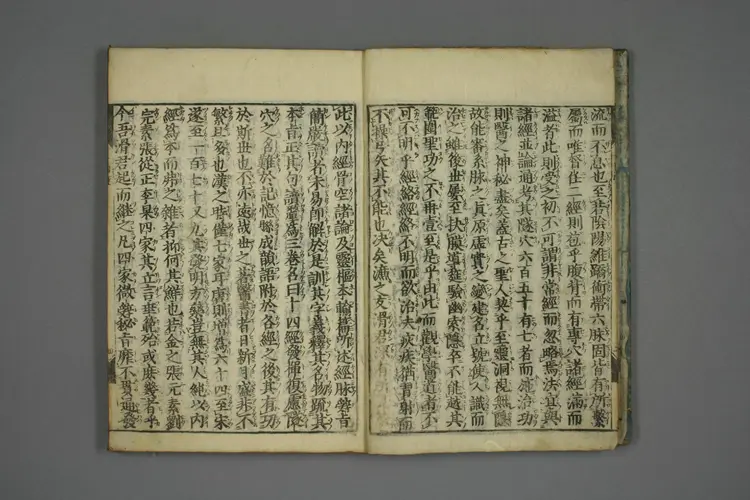 流而不息也至若陰陽維蹻衝帶六脉固皆有所繫
屬而唯督任二經則苞乎腹背而有專穴諸經滿而
溢者此則受之初不可謂非常經而忽略焉法宜與
諸經並論通考其隧穴六百五十有七者而施治功
則醫之神秘盡矣蓋古之聖人契乎至靈洞視無隱
故能審系脉之真原虛實之變建名立號使人識而
治之雖後世屢至抉膜導窾驗幽索隱卒不能越其
範圍聖功之不再壹至是乎由此而觀學醫道者不
可不明乎經絡經絡不明而欲治夫疢疾猶習射而
不操弓矢其不能也决矣濂之友滑君
此以内經骨空諸論及靈樞本輸篇所述經脉辤旨
簡嚴讀者未易即解於是訓其字義釋其名物疏其
本旨正其句讀釐爲三卷名曰十四經發揮復慮隧
穴之名難於記憶聮成韻語附於各經之後其有功
於斯世也不亦遠哉世之著醫書者日新月盛非不
繁且多也漢之時僅七家耳唐則增爲六十四至宋
遂至一百七十又九其發明方藥豈無其人純以内
經爲本而弗之雜者抑何其鮮也若金之張元素劉
完素張從正李杲四家其立言垂範殆或庶幾者乎
今吾滑君起而繼之凡四家微辤秘旨靡不貫通發